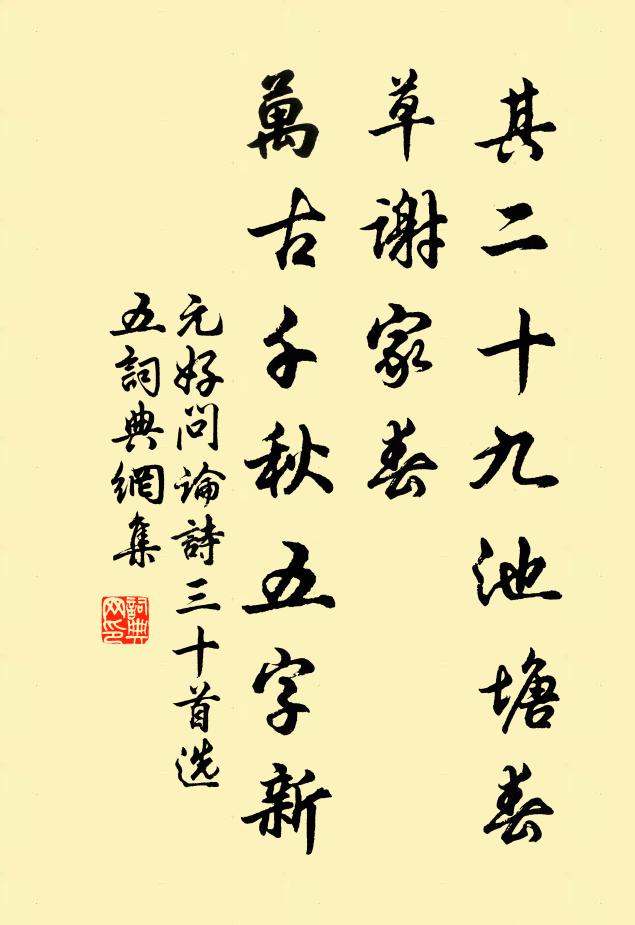 其二十九池塘春
草謝家春
萬古千秋五字新
元好问論詩三十首选
五詞典網集
詞典
网印